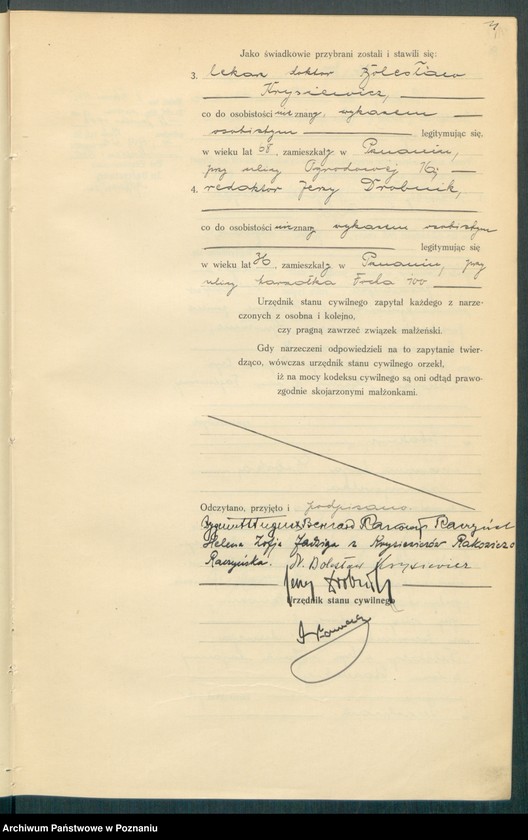 Jako świadkowie przybrani zostali i stawili się:
3. lekarz doktor Bolesław
Krysiewicz,
co do osobistości nieznany, wykazem
osobistym legitymując się,
w wieku lat 58, zamieszkały w Poznaniu,
przy ulicy Ogrodowej
4. redaktor Jerzy Drobnik,
co do osobistości nieznany wykazem osobistym
legitymując się
w wieku lat 36, zamieszkały w Poznaniu, przy
ulicy marszałka Focha 100
Urzędnik stanu cywilnego zapytał każdego z narze-
czonych z osobna i kolejno,
czy pragną zawrzeć związek małżeński.
Gdy narzeczeni odpowiedzieli na to zapytanie twier-
dząco, wówczas urzędnik stanu cywilnego orzekł,
iż na mocy kodeksu cywilnego są oni odtąd prawo-
zgodnie skojarzonymi małżonkami.
Odczytano, przyjęto i podpisano.
Bernard Raczyński
Helena Zofja Jadwiga z Krysiewiczów
Raczyńska. Dr. Bolesław Krysiewicz
Jerzy Drobnik
Urzędnik stanu cywilnego
Archiwum Państwowe w Poznaniu